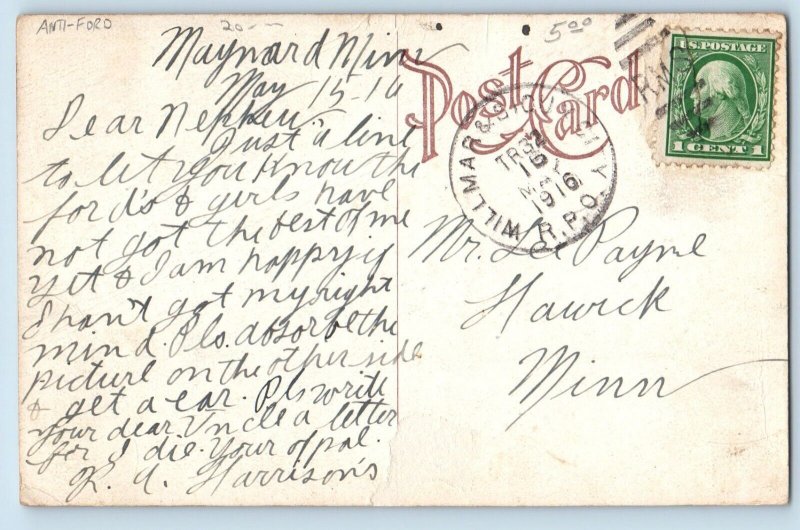 ANTI-FORD
20 --
5.00
Maynard Minn
May 15-16
Post Card
Dear Nephew
Just a line
to let you know the
fords & girls have
not got the best of me
yet & I am happy if
I han't got my right
mind. Pls. absorb the
picture on the other side
& get a ear. Pls write
your dear Uncle a letter
for I die. Your opal.
R. A. Harrison's
WILLMAR & SIOUX
TR 32
15
MAY
1916
R.P.O.
R.M.S
U.S. POSTAGE
1 CENT 1
Mr. Payne
Hawick
Minn